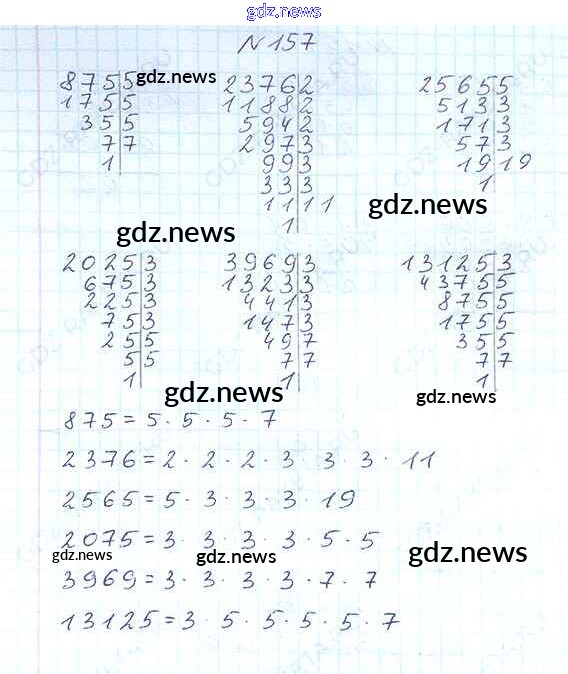 gdz.news
N 157
875|5 gdz.news 2376|2 2565|5
175|5 1188|2 513|3
35|5 594|2 171|3
7|7 297|3 57|3
1| 99|3 19|19
33|3 1|
11|11 gdz.news
1|
gdz.news
2025|3 3969|3 13125|3
675|3 1323|3 4375|5
225|3 441|3 875|5
75|3 147|3 175|5
25|5 49|7 35|5
5|5 7|7 7|7
1| 1| 1|
gdz.news gdz.news
875 = 5 · 5 · 5 · 7
2376 = 2 · 2 · 2 · 3 · 3 · 3 · 11
2565 = 5 · 3 · 3 · 3 · 19
2075 = 3 · 3 · 3 · 3 · 5 · 5
gdz.news gdz.news gdz.news
3969 = 3 · 3 · 3 · 3 · 7 · 7
13125 = 3 · 5 · 5 · 5 · 5 · 7